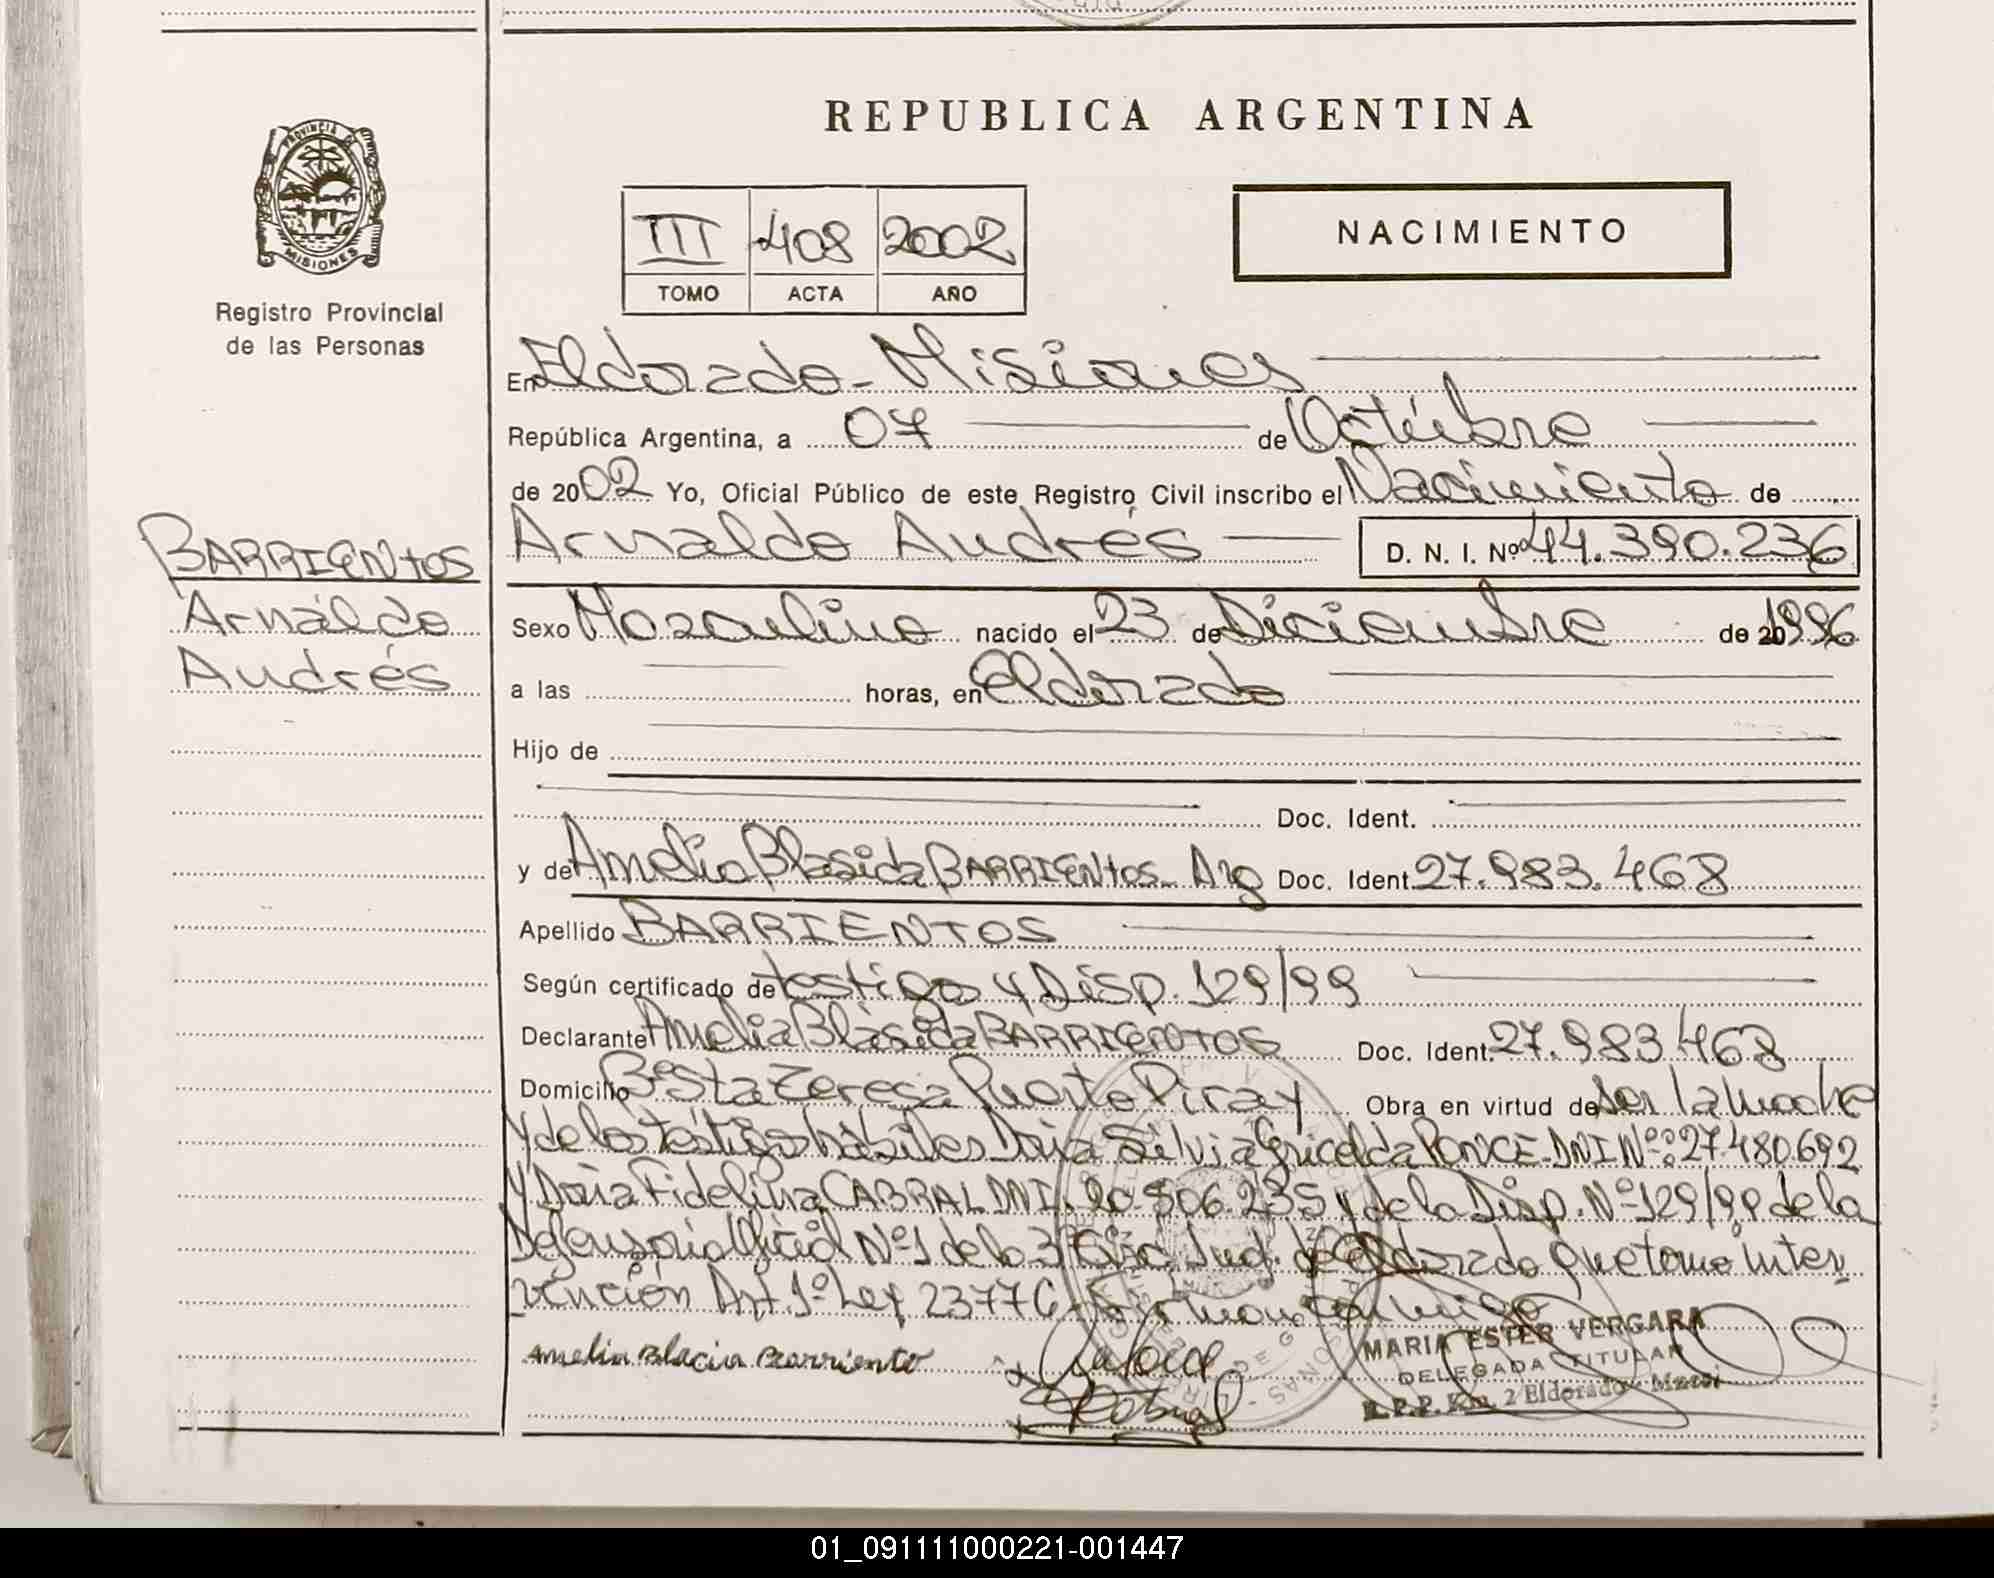 REPUBLICA ARGENTINA
PROVINCIA DE
MISIONES
Registro Provincial
de las Personas
III 408 2002
TOMO ACTA AÑO
NACIMIENTO
En Eldorado - Misiones
República Argentina, a 07 de Octúbre
de 2002 Yo, Oficial Público de este Registro Civil inscribo el Nacimiento de
Arnaldo Andrés D. N. I. Nº 44.390.236
BARRIENTOS
Arnaldo
Andrés
Sexo Masculino nacido el 23 de Diciembre de 1996
a las horas, en Eldorado
Hijo de
Doc. Ident.
y de Amelia Blasida BARRIENTOS - Arg Doc. Ident. 27.983.468
Apellido BARRIENTOS
Según certificado de testigo y Disp. 129/99
Declarante Amelia Blasida BARRIENTOS Doc. Ident. 27.983.468
Domicilio Bº Sta Teresa Puerto Piray Obra en virtud de ser la madre
y de los testigos hábiles Doña Silvia Gricelda PONCE - DNI Nº: 27.480.692
y Doña Fidelina CABRAL DNI. 20.506.235 y de la Disp. Nº 129/99 de la
Defensoria Oficial Nº 1 de la 3º Circ. Jud. de Eldorado que tomo inter
vención Art. 1º Ley 23776 - Firman conmigo
Amelia Blacia Barriento
MARIA ESTER VERGARA
DELEGADA TITULAR
R.P.P. Km. 2 Eldorado - Mnes
01_091111000221-001447